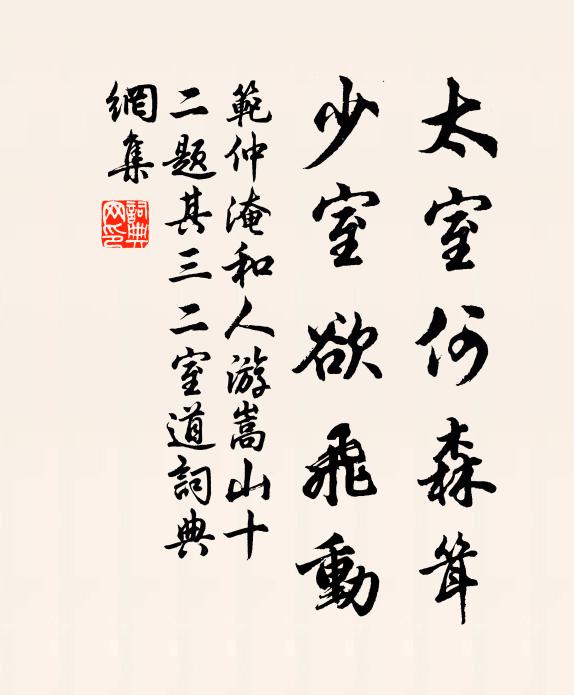 太室何森聳
少室欲飛動
範仲淹和人游嵩山十
二題其三二室道詞典
網集
詞典
网印